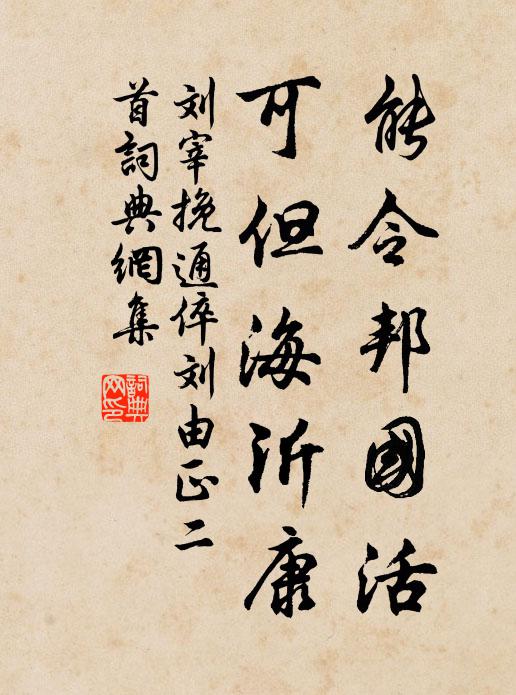 能令邦國活
可但海沂康
刘宰挽通倅刘由正二
首詞典網集
詞典
网印